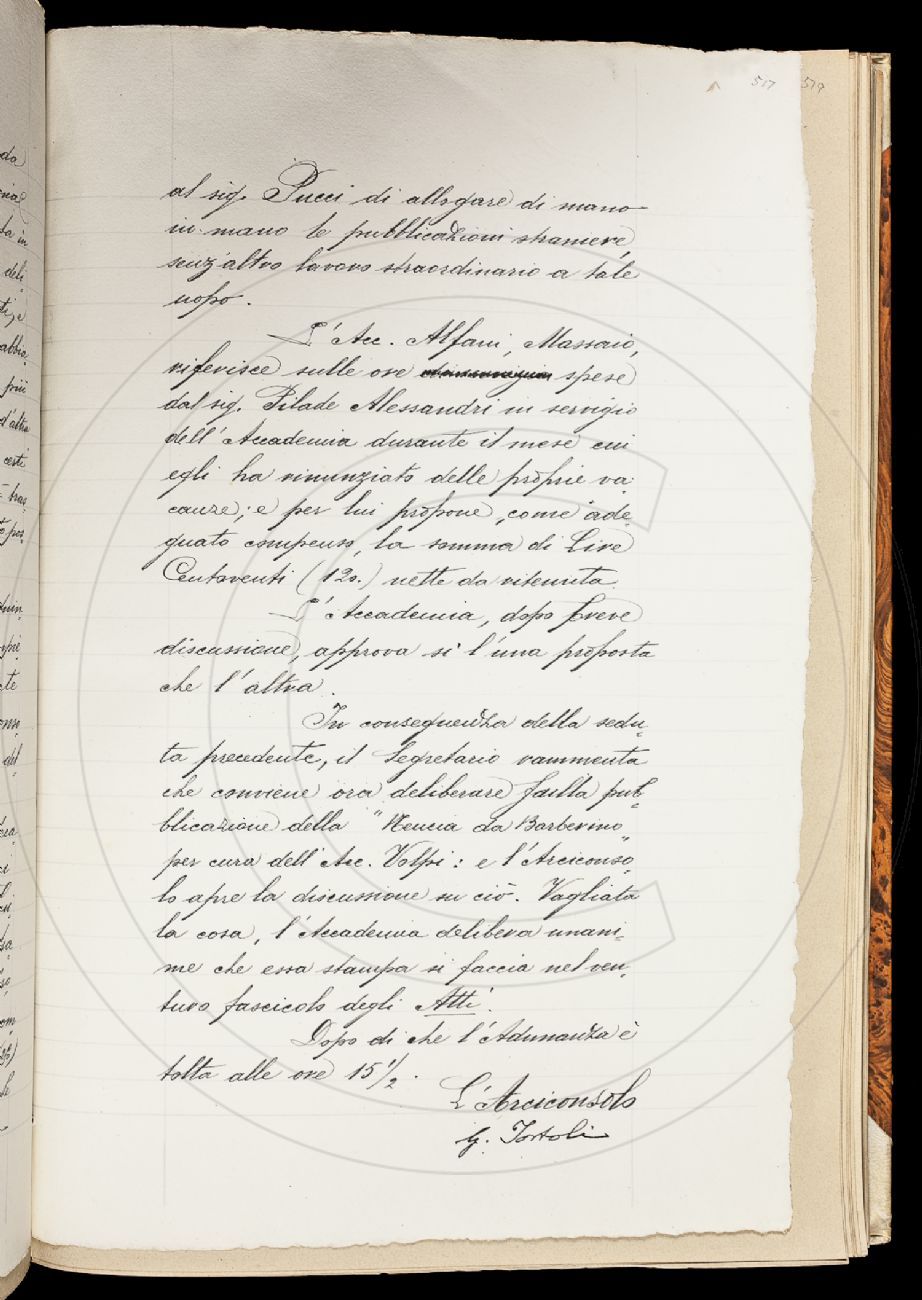 517 519
al sig. Pucci di allogare di mano
in mano le pubblicazioni straniere,
senz'altro lavoro straordinario a tale
uopo.
L'Acc. Alfani, Massaio,
riferisce sulle ore spese
dal sig. Pilade Alessandri in servigio
dell'Accademia durante il mese cui
egli ha rinunziato delle proprie va-
canze; e per lui propone, come ade-
guato compenso, la somma di Lire
Centoventi (120.) nette da ritenuta
L'Accademia, dopo breve
discussione, approva sì l'una proposta
che l'altra.
In conseguenza della sedu-
ta precedente, il Segretario rammenta
che conviene ora deliberare sulla pub-
blicazione della "Nencia da Barberino"
per cura dell'Acc. Volpi: e l'Arciconso-
lo apre la discussione su ciò. Vagliata
la cosa, l'Accademia delibera unani-
me che essa stampa si faccia nel ven-
turo fascicolo degli Atti.
Dopo di che l'Adunanza è
tolta alle ore 15 1/2.
L'Arciconsolo
G. Tortoli